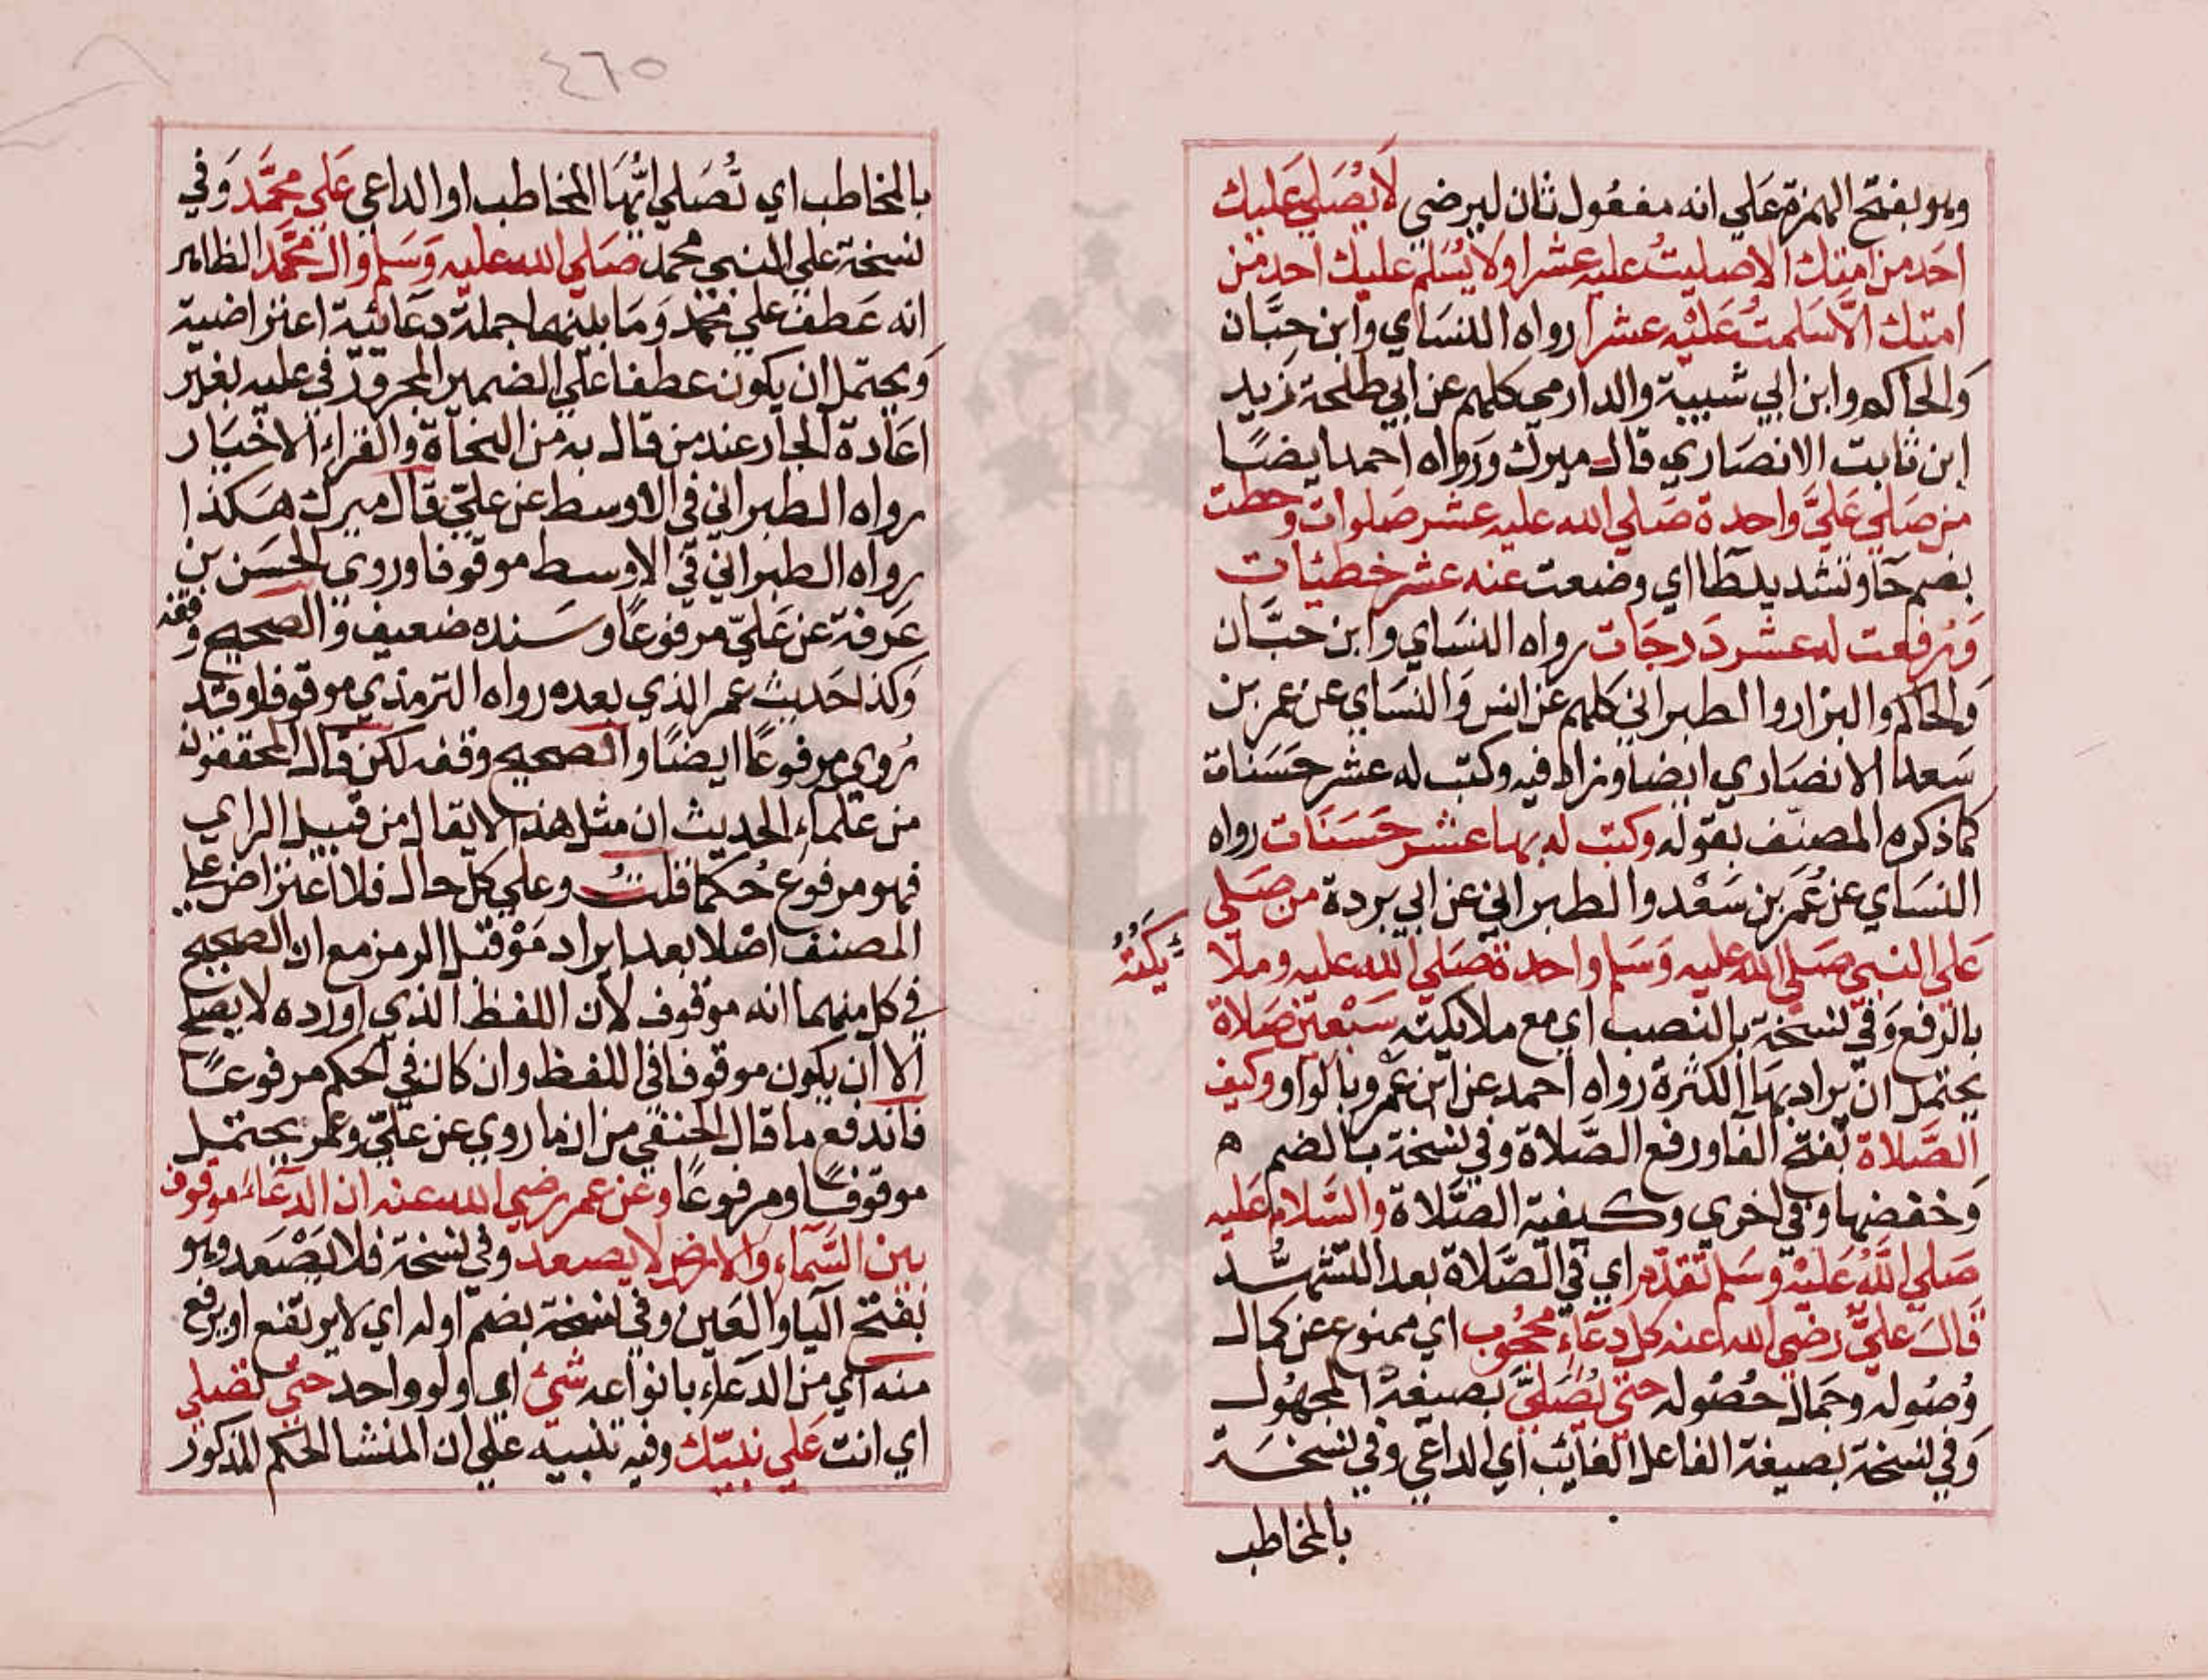 وهو بفتح الهمزة علي انه مفعول ثان ليرضي لا يُصَلي عَليك
احَد من امتك الا صليتُ عليه عشرا ولا يُسَلم عليك احد من
امتك الَّا سَلمتُ عَليْه عشرا رواه النسَاي وابن حِبَّان
وَالحاكم وابن ابي شيبة والدارمي كلهم عن ابي طلحة زيد
ابن ثابت الانصَاري قال ميرك وَرَواه احمد ايضًا
من صَلي عَليَّ واحدة صَلي الله عليه عشر صَلوات وحطت
بضم حَا وتشديد طَا اي وضعت عنه عشر خطيئات
وَرفعت له عشر دَرجَات رواه النسَاي وابن حبَّان
وَالحاكم والبزار والطبراني كلهم عن انس وَالنسَاي عن عمر بن
سَعد الانصَاري ايضا وزاد فيه وكتب له عشر حَسَنات
كما ذكره المصنّف بقوله وكتب له بها عشر حَسَنَات رواه
النسَاي عن عُمَر بن سَعْد والطبراني عن ابي بَردة من صَلي
عَلي النبي صَلي الله عليه وَسَلم واحدة صَلي الله عليه وملا
ئِكَتُهُ
بالرفع وَفي نسخة بالنصب اي مع ملائكته سَبْعين صَلاة
يحتمل ان يراد بهَا الكثرة رواه احمد عن ابن عَمْرو بالواو وكيف
الصَّلاة بفتح الفا ورفع الصَّلاة وفي نسخة بالضم ه
وَخفضها وفي اخري وكيفية الصَّلاة والسَّلام عَليه
صَلي اللَّهُ عَليْه وسَلم تقدّم اي في الصَّلاة بعد التشهُّد
قالَ عَليٌّ رضي الله عنه كل دعَاءٍ محجُوب اي ممنوع عن كمال
وُصُوله وجمَال حُصُوله حتي يُصَليَّ بصيغة المجهُول
وَفي نسخة بصيغة الفاعل الغائب اي الداعي وفي نسخَة
بالمخاطب
٤٦٥
بالمخاطب اي تُصَلي ايُّهَا المخاطب او الداعي عَلي محمَّد وَفي
نسخة علي النبي محمد صَلي الله عليه وَسَلم وال محمَّد الظاهر
انه عَطف علي محمّد وَمَا بينهما جملة دعَائية اعتراضية
وَيحتمل ان يكون عطفا علي الضمير المجرور في عليه بغير
اعَادة الجار عند من قال به من النحَاة والقراء الاخيَار
رواه الطبراني في الاوسط عن عليّ قال ميرك هَكذا
رواه الطبراني في الاوسط موقوفا وروي الحسَن بن
عَرَفة عن عَليّ مرفوعًا وسَنده ضعيف وَالصحيح وَقفه
وَكذا حَديث عمر الذي بعده رواه الترمذي موقوفا وقد
رُوي مرفوعًا ايضًا والصحيح وقفه لكن قال المحققون
من علماء الحديث ان مثل هذا لا يقال من قبيل الراي
فهو مرفوع حُكما قلتُ وعلي كل حال فلا اعتراض علي
المصنف اصْلا بعد ايراد مَوْ قبل الرمز مع ان الصحيح
في كل منهما انه موقوف لان اللفظ الذي اورده لا يصلح
الا ان يكون موقوفا في اللفظ وان كان في الحكم مرفوعًا
فاندفع ما قال الحنفي من ان ما روي عن عَليّ وعمر يحتمل
موقوفًا ومرفوعًا وعن عمر رضي الله عنه ان الدعَاءَ موقوف
بين السَّمآءِ وَالارض لا يصعد وفي نسخة فلا يَصْعَد وهو
بفتح اليا والعَين وفي نسخة بضم اوله اي لا يرتفع او يرفع
منه اي من الدعَاء بانواعه شئ اي ولو واحد حتي تصَلي
اي انت عَلي نبيّك وفيه تنبيه علي ان المنشا الحكم المذكور